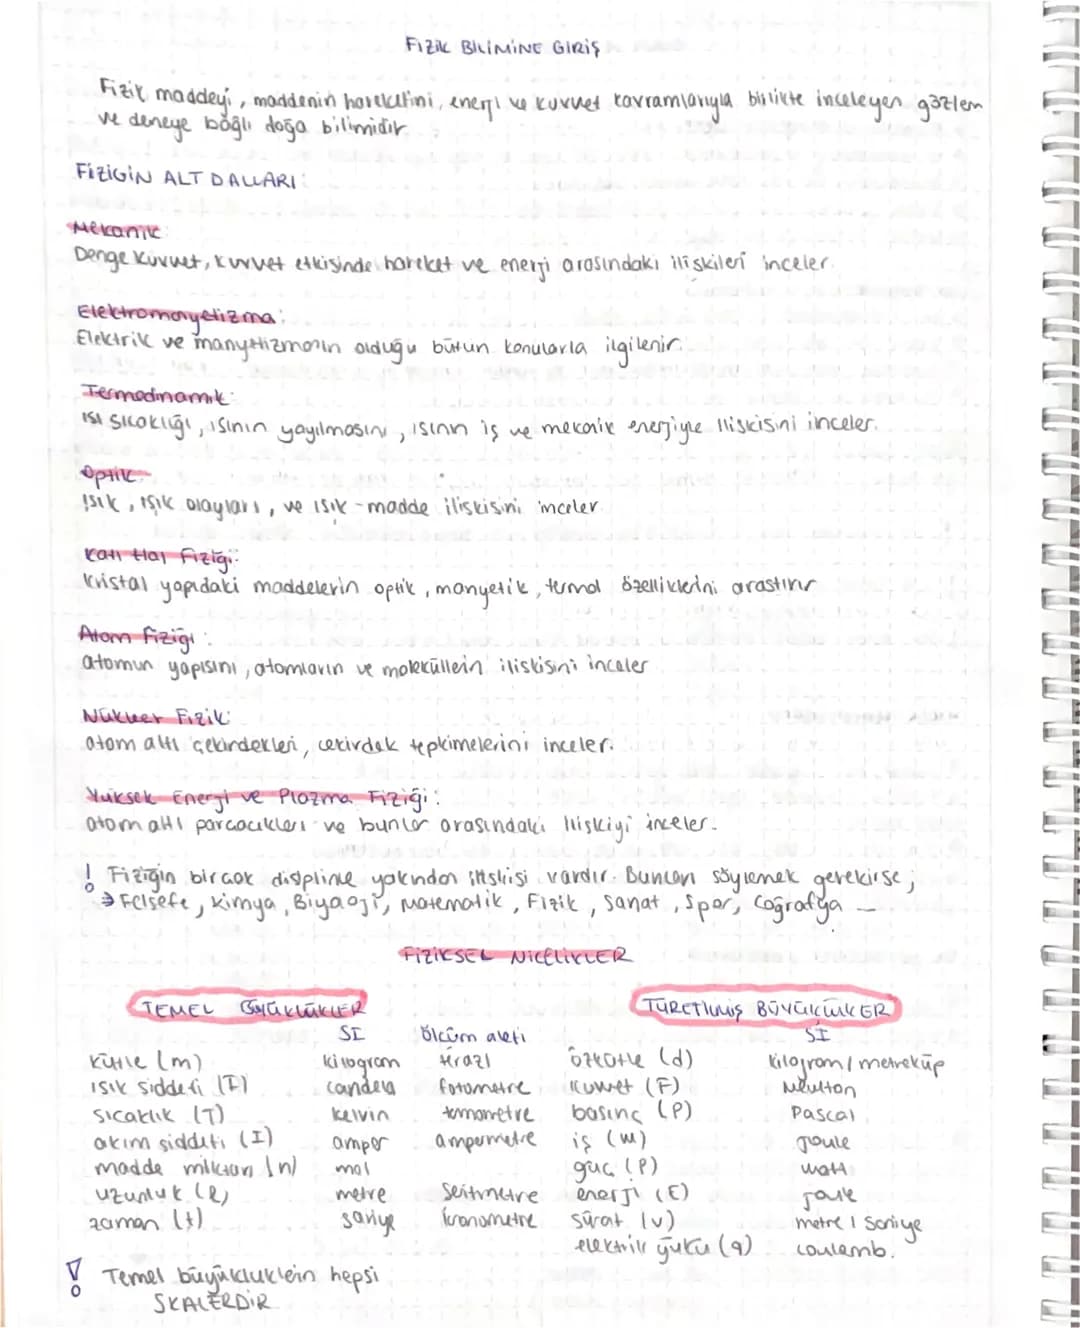 FİZİK BİLİMİNE GİRİŞ
Fizik maddeyi, maddenin hareketini, enerji ve kuvvet kavramlarıyla birlikte inceleyen gözlem
ve deneye bağlı doğa bilimidir.
FİZİĞİN ALT DALLARI:
Mekanik:
Denge kuvvet, kuvvet etkisinde hareket ve enerji arasındaki ilişkileri inceler.
Elektromanyetizma:
Elektrik ve manyetizmanın olduğu bütün konularla ilgilenir.
Termodinamik:
ısı sıcaklığı, ısının yayılmasını, ısının iş ve mekanik enerjiyle iliskisini inceler.
Optik:
Işık, ışık olayları, ve ısık-madde iliskisini inceler.
Katı Hal Fiziği:
Kristal yapıdaki maddelerin optik, manyetik, termal özelliklerini arastırır
Atom Fiziği:
atomun yapısını, atomların ve moleküllein iliskisini inceler
Nükleer Fizik:
atom altı çekirdekleri, cekirdek tepkimelerini inceler.
Yüksek Enerji ve Plazma Fiziği:
atom altı parcacıkları ve bunlar arasındaki iliskiyi inceler.
! Fiziğin bircok disipline yakından iliskisi vardır. Bunları söylemek gerekirse;
→ Felsefe, kimya, Biyoloji, Matematik, Fizik, Sanat, Spor, Coğrafya ...
FİZİKSEL NİCELİKLER
TEMEL BÜYÜKLÜKLER TÜRETİLMİŞ BÜYÜKLÜKLER
SI ölçüm aleti SI
kütle (m) kilogram terazi özkütle (d) kilogram/metreküp
ışık siddeti (I) candela fotometre kuvvet (F) Newton
sıcaklık (T) kelvin termometre basınç (P) Pascal
akım siddeti (I) amper ampermetre iş (w) joule
madde miktarı (n) mol güç (P) watt
uzunluk (l) metre Seritmetre enerji (E) joule
zaman (t) saniye kronometre sürat (v) metre / Saniye
elektrik yükü (q) coulomb.
! Temel büyüklüklein hepsi
SKALERDİR